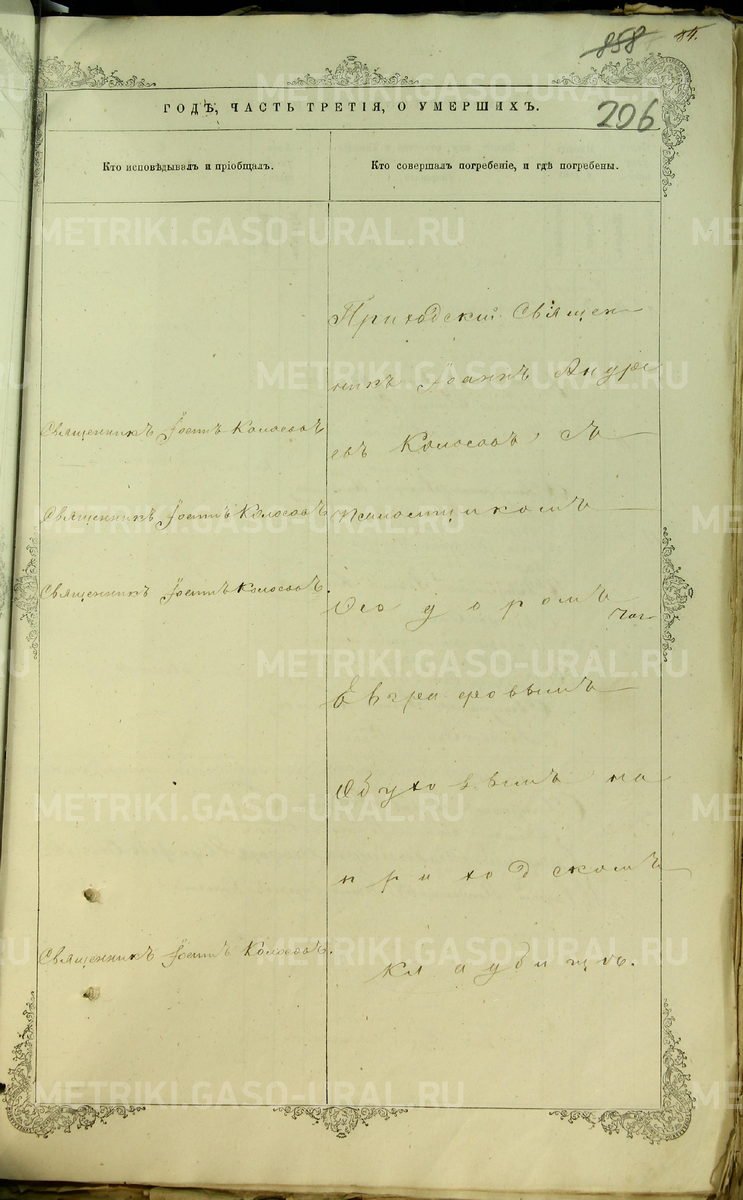 858
84.
206
ГОДѢ, ЧАСТЬ ТРЕТІЯ, О УМЕРШИХЪ.
Кто исповѣдывалъ и пріобщалъ.
Кто совершалъ погребеніе, и гдѣ погребены.
Священникъ Іоаннъ Колосовъ
Священникъ Іоаннъ Колосовъ
Священникъ Іоаннъ Колосовъ.
Священникъ Іоаннъ Колосовъ.
Приходскій Священ
никъ Іоаннъ Андре
евъ Колосовъ съ
Псаломщикомъ
Ѳеодоромъ
Евграфовымъ
Обуховымъ на
приходскомъ
кладбищѣ.
METRIKI.GASO-URAL.RU